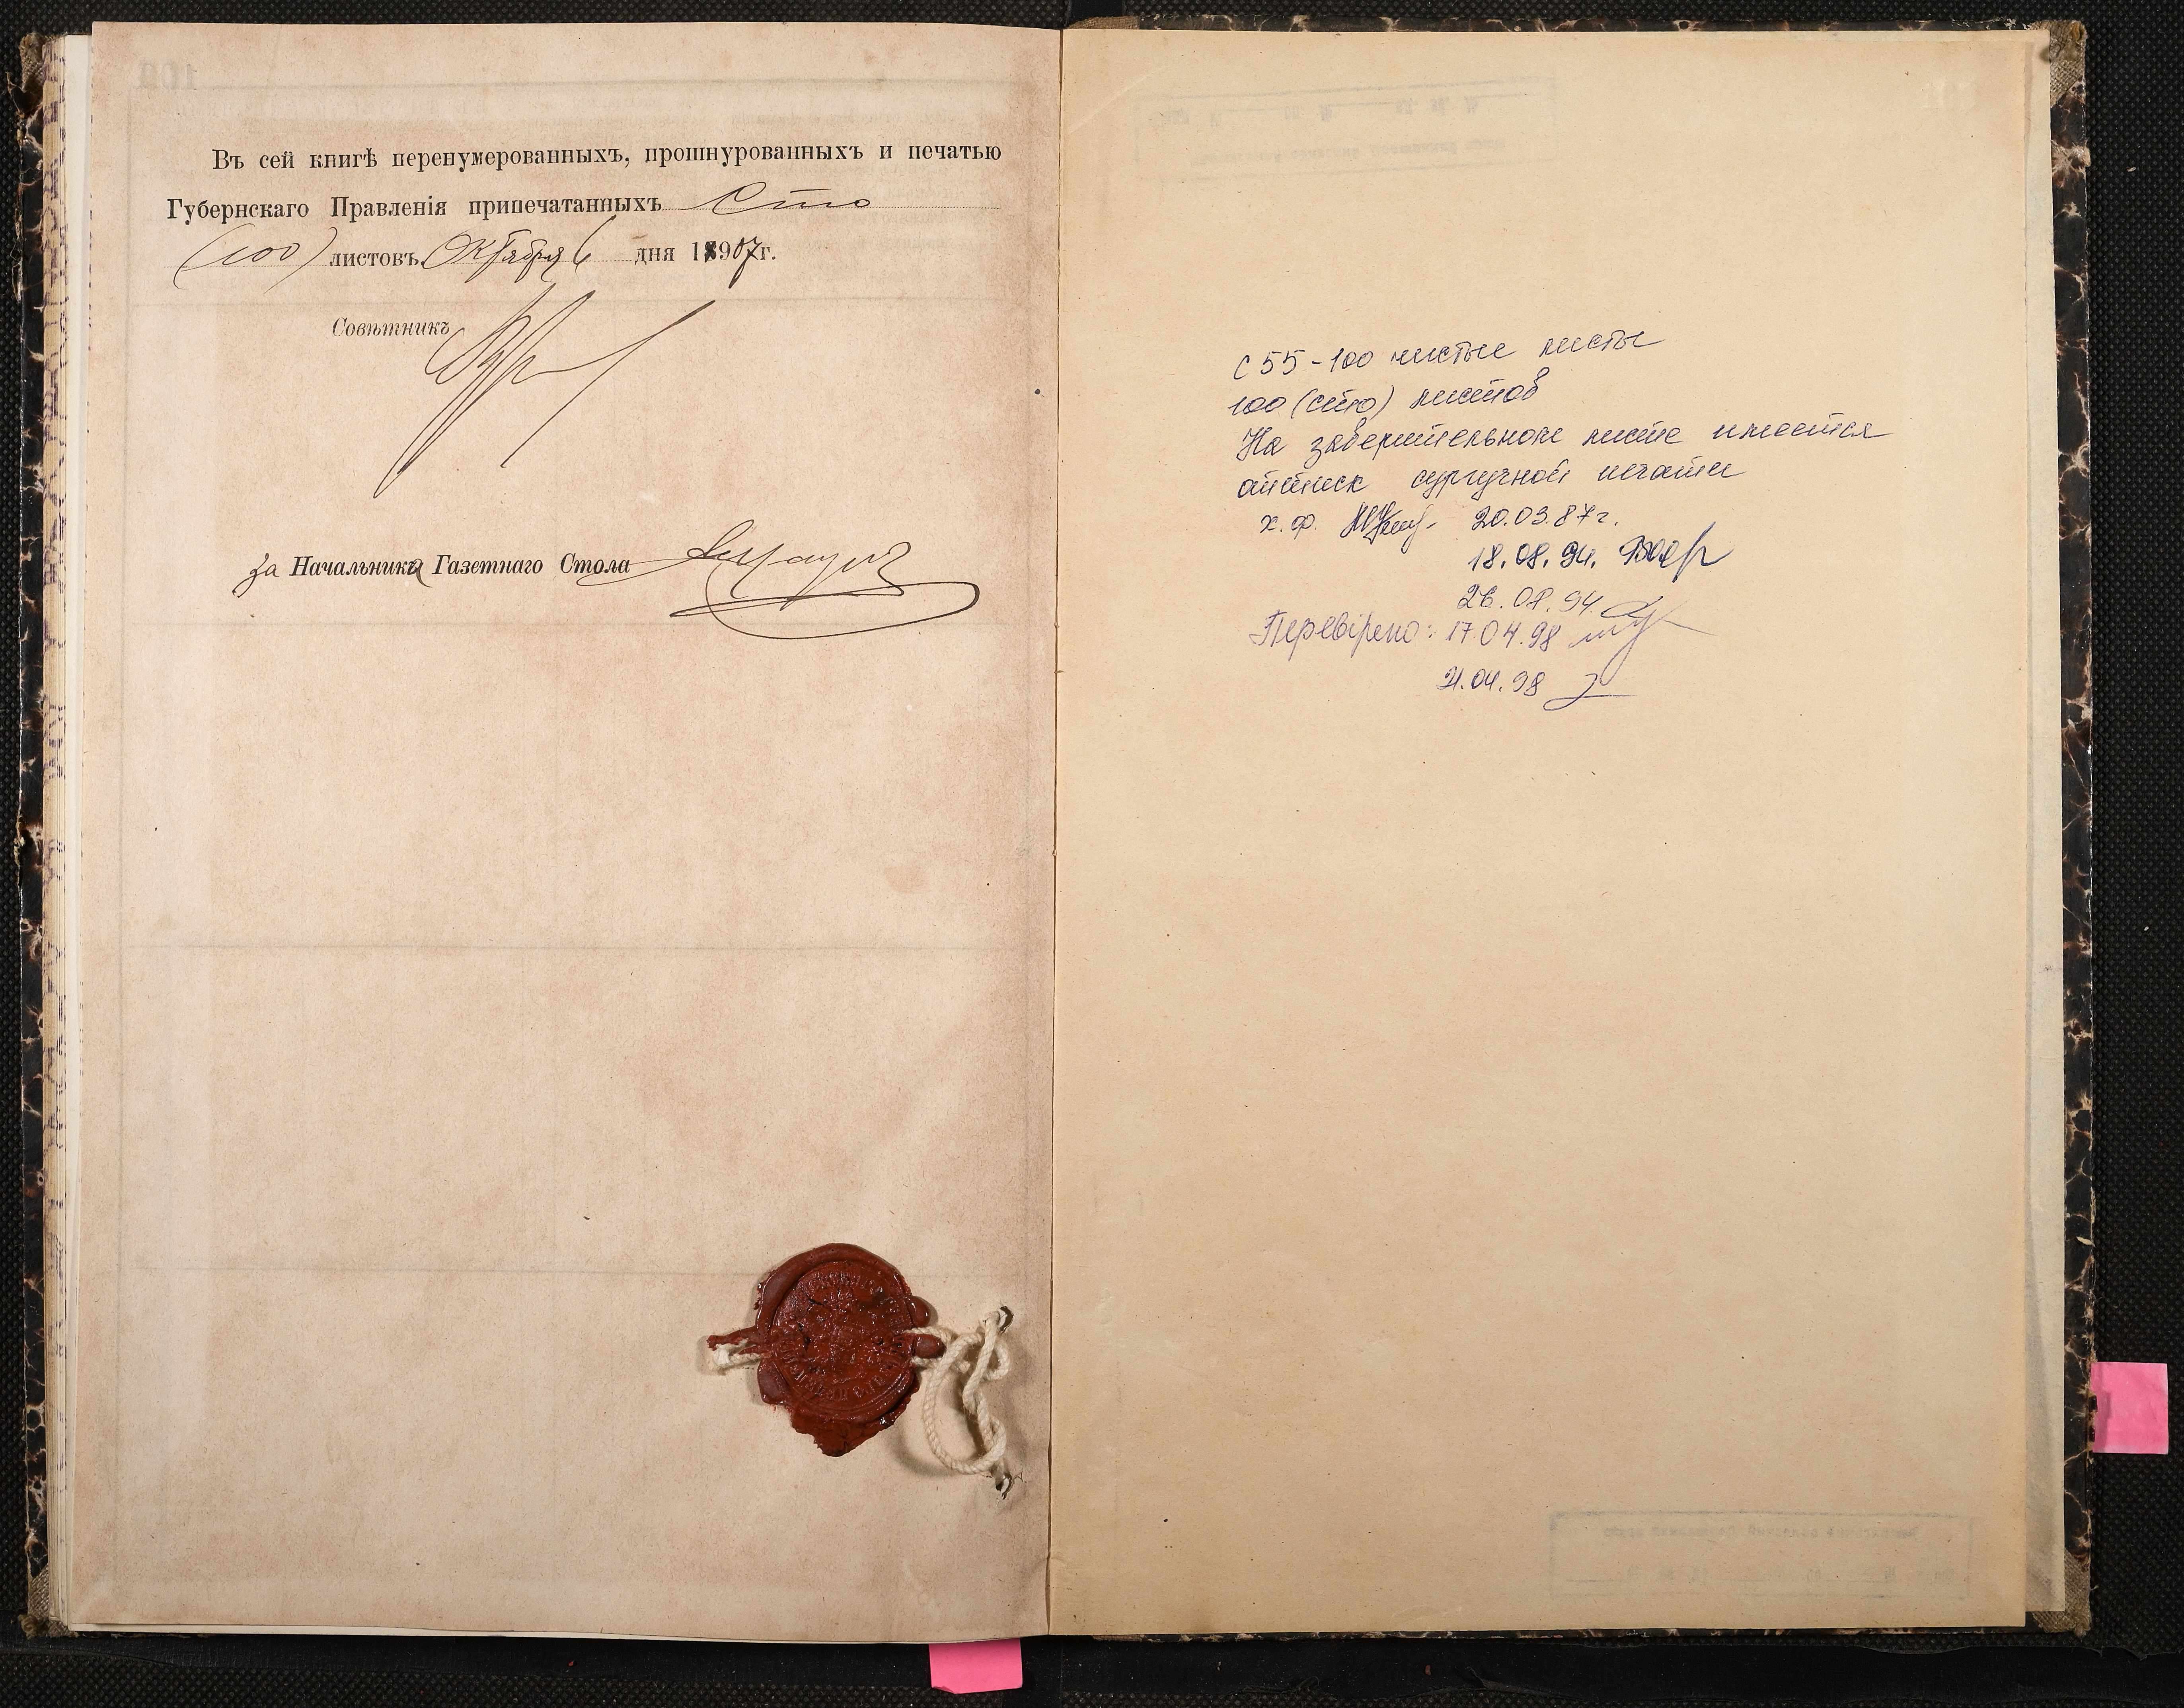 Въ сей книгѣ перенумерованныхъ, прошнурованныхъ и печатью
Губернскаго Правленія припечатанныхъ Сто
(100) листовъ. Октября 6 дня 1907 г.
Совѣтникъ
за Начальника Газетнаго Стола
с 55-100 чистые листы
100 (сто) листов
На заверительном листе имеется
оттиск сургучной печати
х.ф. 20.03.87г.
18.08.94.
26.08.94
Перевірено: 17.04.98
21.04.98